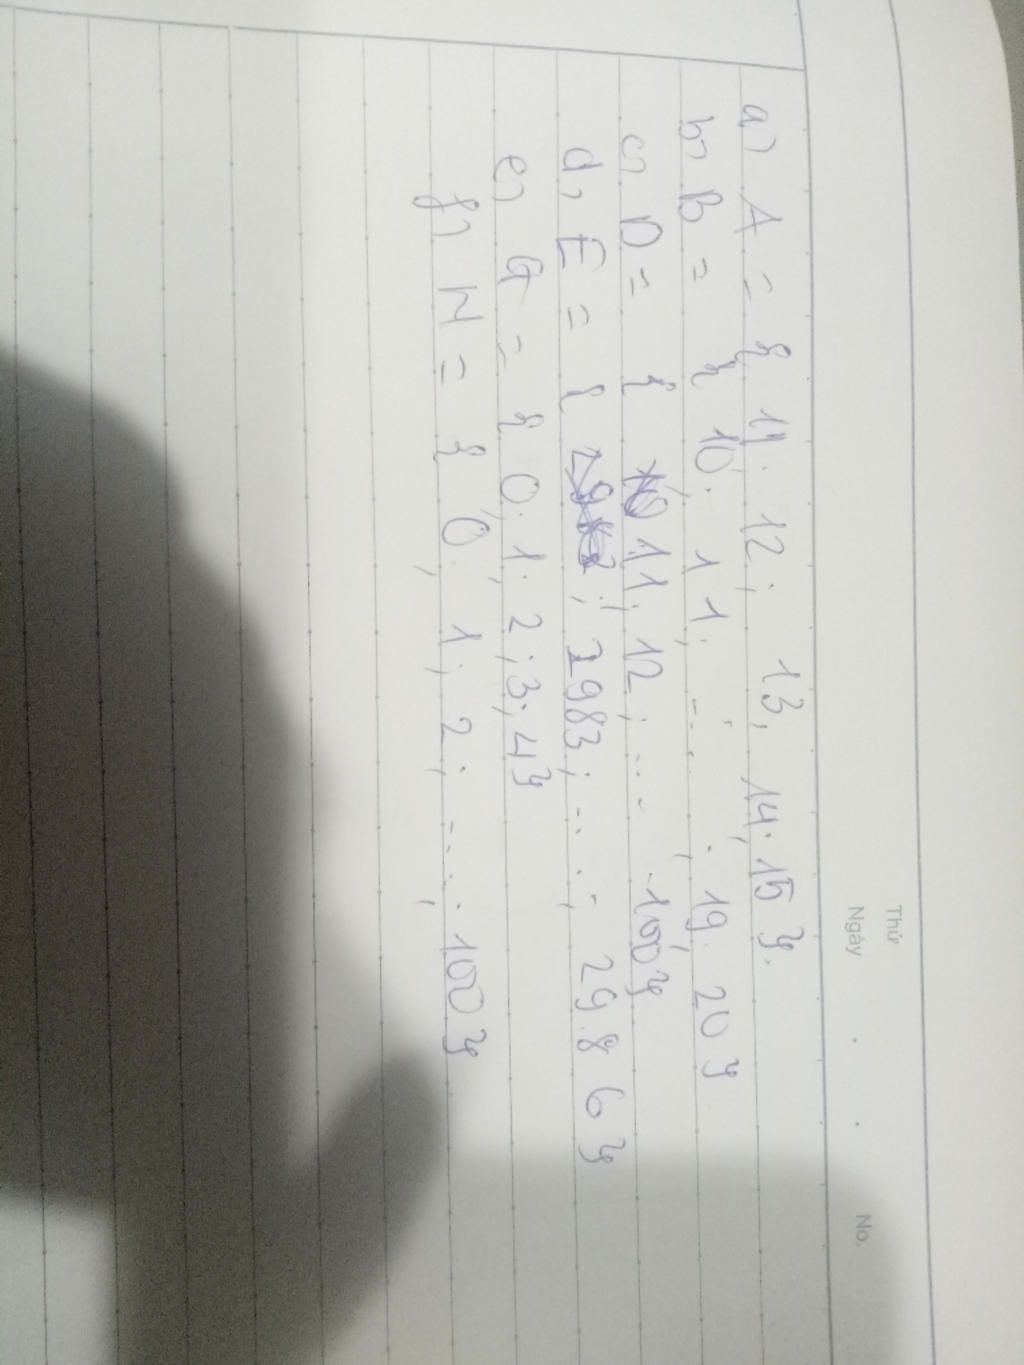 Thứ
Ngày . . No.
a) A = { 11; 12; 13; 14; 15 }.
b) B = { 10; 11; ....; 19; 20 }
c) D = { 11; 12; .... 100 }
d, E = { ; 2983; ....; 2986 }
e) G = { 0; 1; 2; 3; 4 }
f) H = { 0; 1; 2; ....; 100 }